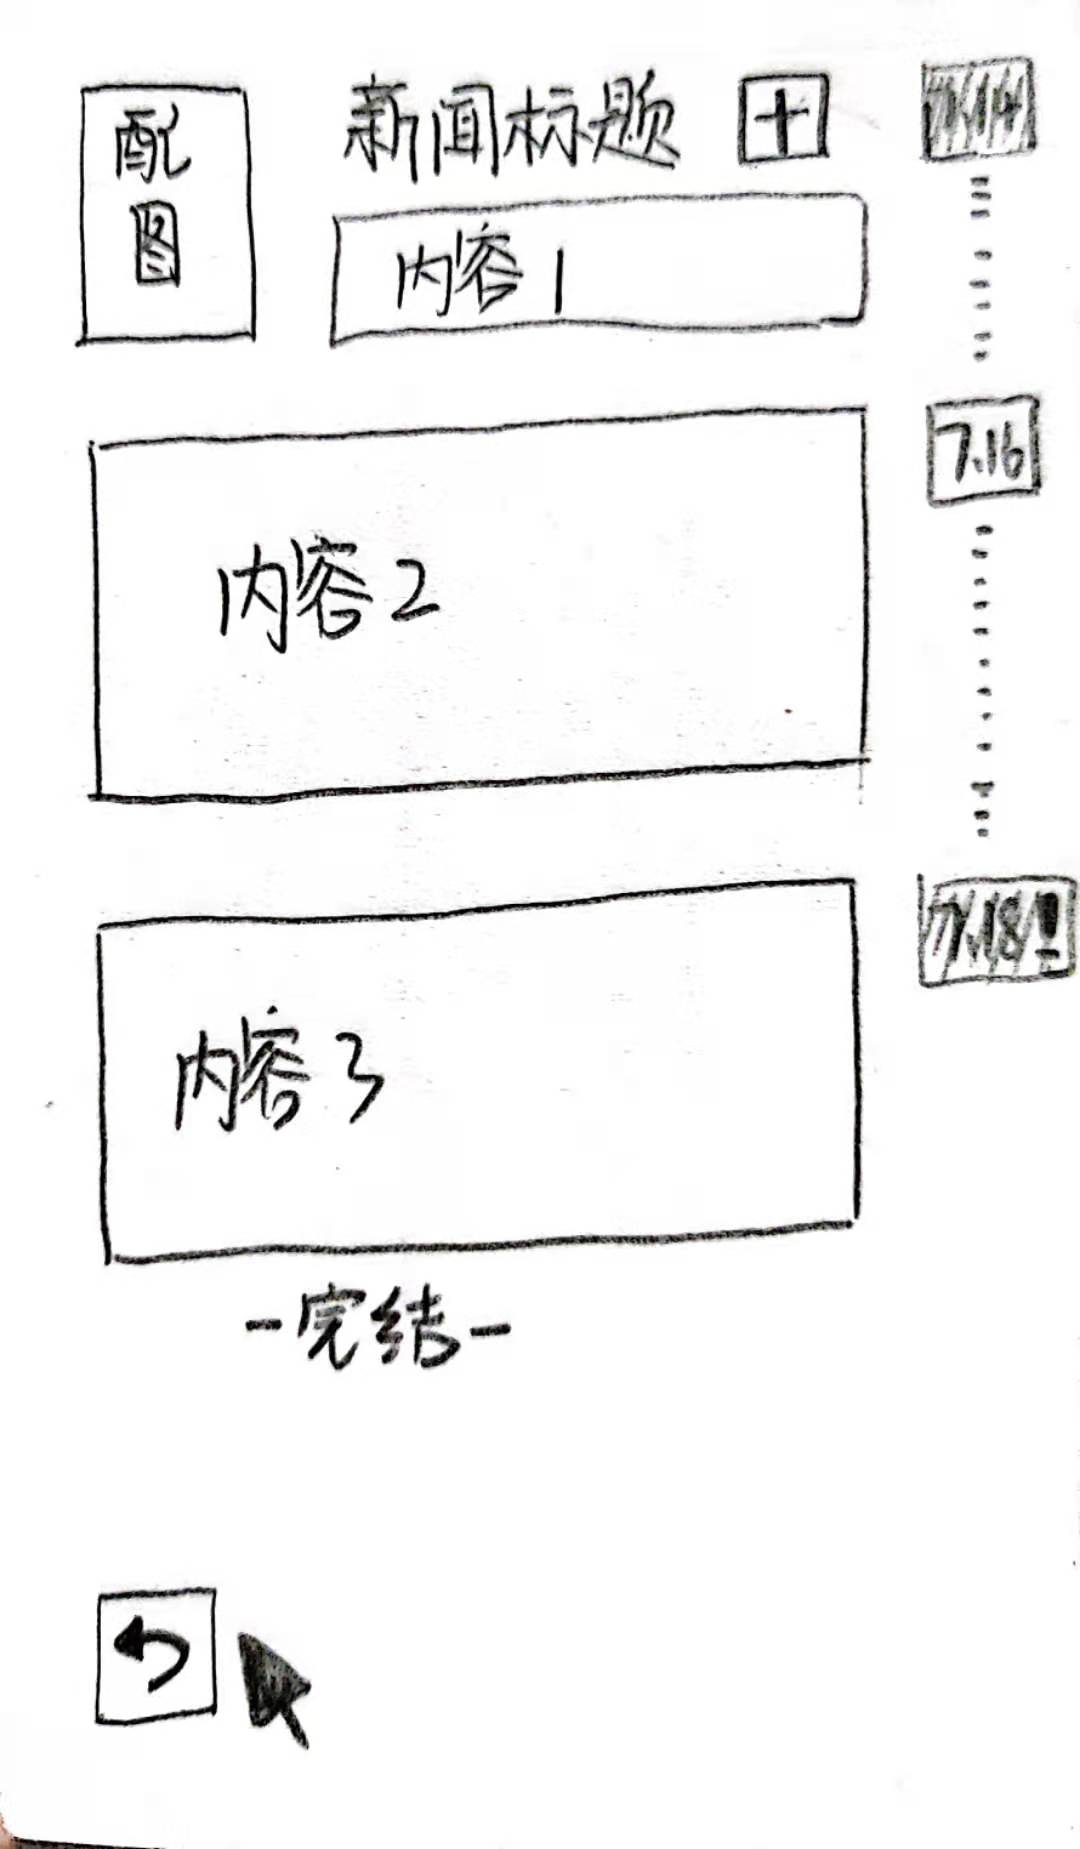 配图
新闻标题
7.14
内容1
7.16
内容2
7.18!
内容3
-完结-